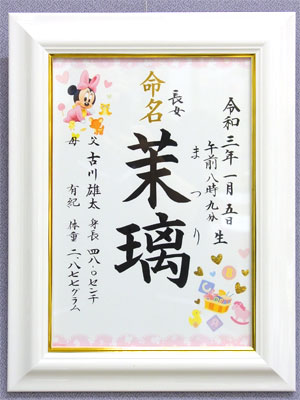 令和三年一月五日
午前八時九分 生
命名
長女
茉璃
まつり
父 古川雄太 身長 四八・〇センチ
母 有紀 体重 二、八七七グラム